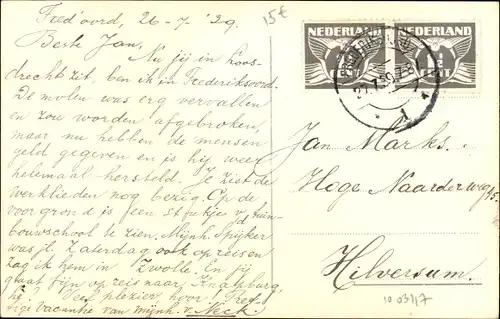 Fred'oord, 26-7-'39.
Beste Jan,
Nu jij in Loos-
drecht zit, ben ik in Frederiksoord.
De molen was erg vervallen
en zou worden afgebroken,
maar nu hebben de mensen
geld gegeven en is hij weer
helemaal hersteld. Je ziet de
werklieden nog bezig. Op de
voorgrond is een stukje v/d tuin-
bouwschool te zien. Mijnh. Spijker
was j.l. Zaterdag ook op reis en
zag ik hem in Zwolle. En jij
gaat fijn op reis naar
hè! Veel plezier, hoor!
tige vacantie van mijnh. v. Neck.
15€
NEDERLAND NEDERLAND
27.7.39.7-8
1
Jan Marks.
Hoge Naarderweg
Hilversum.
10 03417